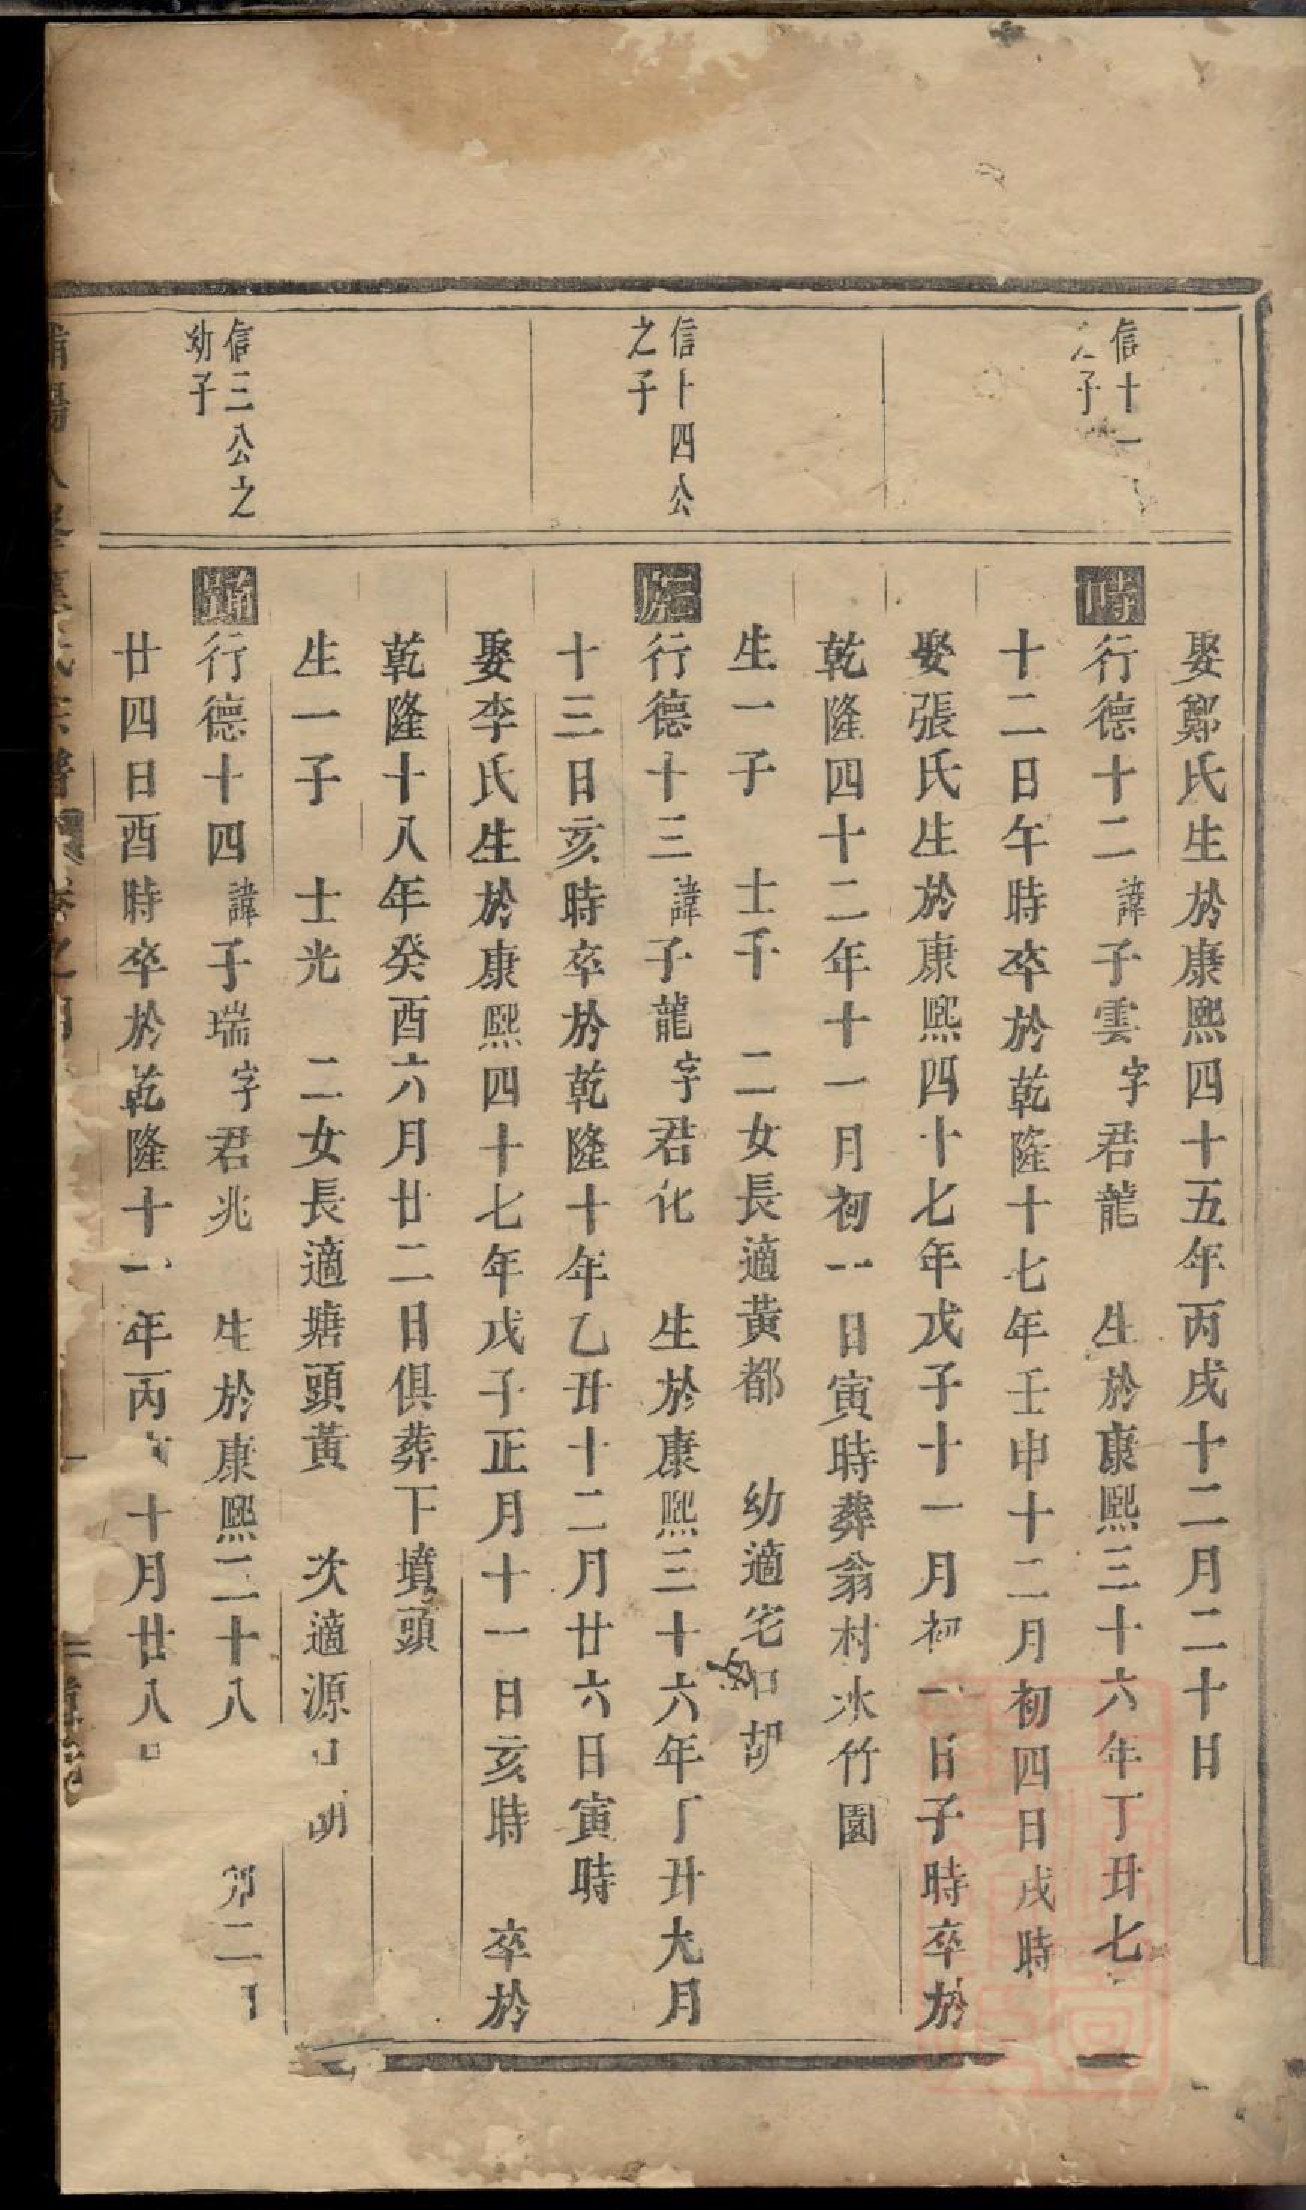 娶鄭氏生於康熙四十五年丙戌十二月二十日
信十一
子
時
行德十二諱子雲字君龍 生於康熙三十六年丁丑七
十二日午時卒於乾隆十七年壬申十二月初四日戌時
娶張氏生於康熙四十七年戊子十一月初一日子時卒於
乾隆四十二年十一月初一日寅時葬翁村水竹園
生一子 士千 二女長適黃都 幼適宅口胡
信十四公
之子
行德十三諱子龍字君化 生於康熙三十六年丁丑九月
十三日亥時卒於乾隆十年乙丑十二月廿六日寅時
娶李氏生於康熙四十七年戊子正月十一日亥時 卒於
乾隆十八年癸酉六月廿二日俱葬下墳頭
生一子 士光 二女長適塘頭黃 次適源口胡
信三公之
幼子
行德十四諱子瑞字君兆 生於康熙二十八 二
廿四日酉時卒於乾隆十一年丙 十月廿八